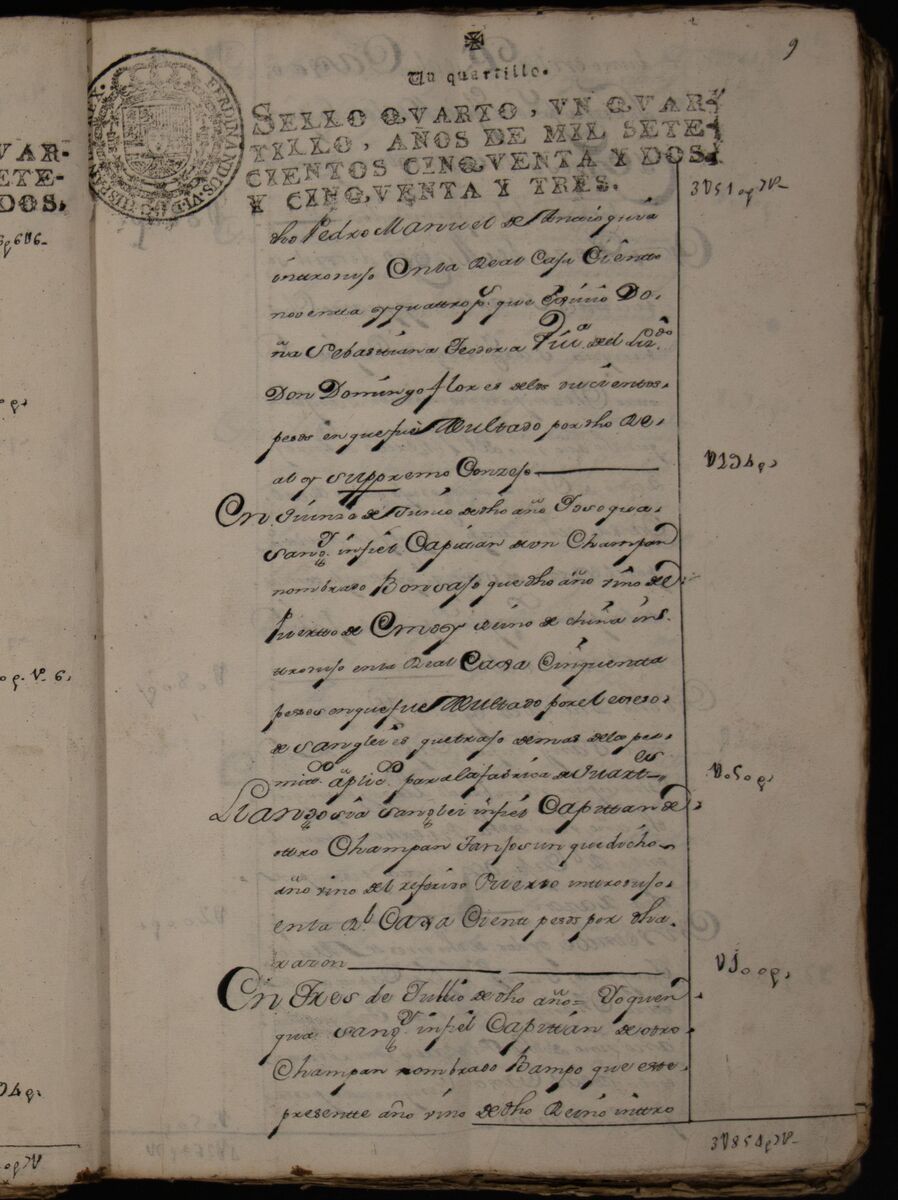 9
Un quartillo.
SELLO QVARTO, VN QVAR-
TILLO, AÑOS DE MIL SETE-
CIENTOS CINQVENTA Y DOS,
Y CINQVENTA Y TRES.
FERDINANDUS.VI.D.G.HISPAN REX.
VAR-
ETE-
DOS.
dho Pedro Manuel de
introdujo en la Real Caja Ciento
noventa y quattro ps. que exivio Do-
ña Sebastiana Teodora Viua. del Lizdo.
Don Domingo flores delos ducientos
pesos en que fue Multado por dho Re-
al y Suppremo Consejo
V194p.
En quinze de Junio de dho año Yosoqua
Sangley infiel Capittan de vn Champan
nombrado Bonsaso que dho año vino del
Puertto de Emuy Reino de China in-
trodujo en la Real Caxa Cinquenta
pesos en que fue Multado por el exceso
de Sangleies que trajo demas de la per-
mitda. aplicda. para la fabrica de
V.50p.
Liangosia Sanglei infiel Capittan de
ottro Champan que dicho
año vino del referido Puertto introdujo
en la Rl. Caxa Cient pesos por dha
razon
V100p.
En Tres de Jullio de dho año= Yoquen
qua Sangy. infiel Capittan de otro
Champan nombrado Bampo que este
presentte año vino de dho Reino intro